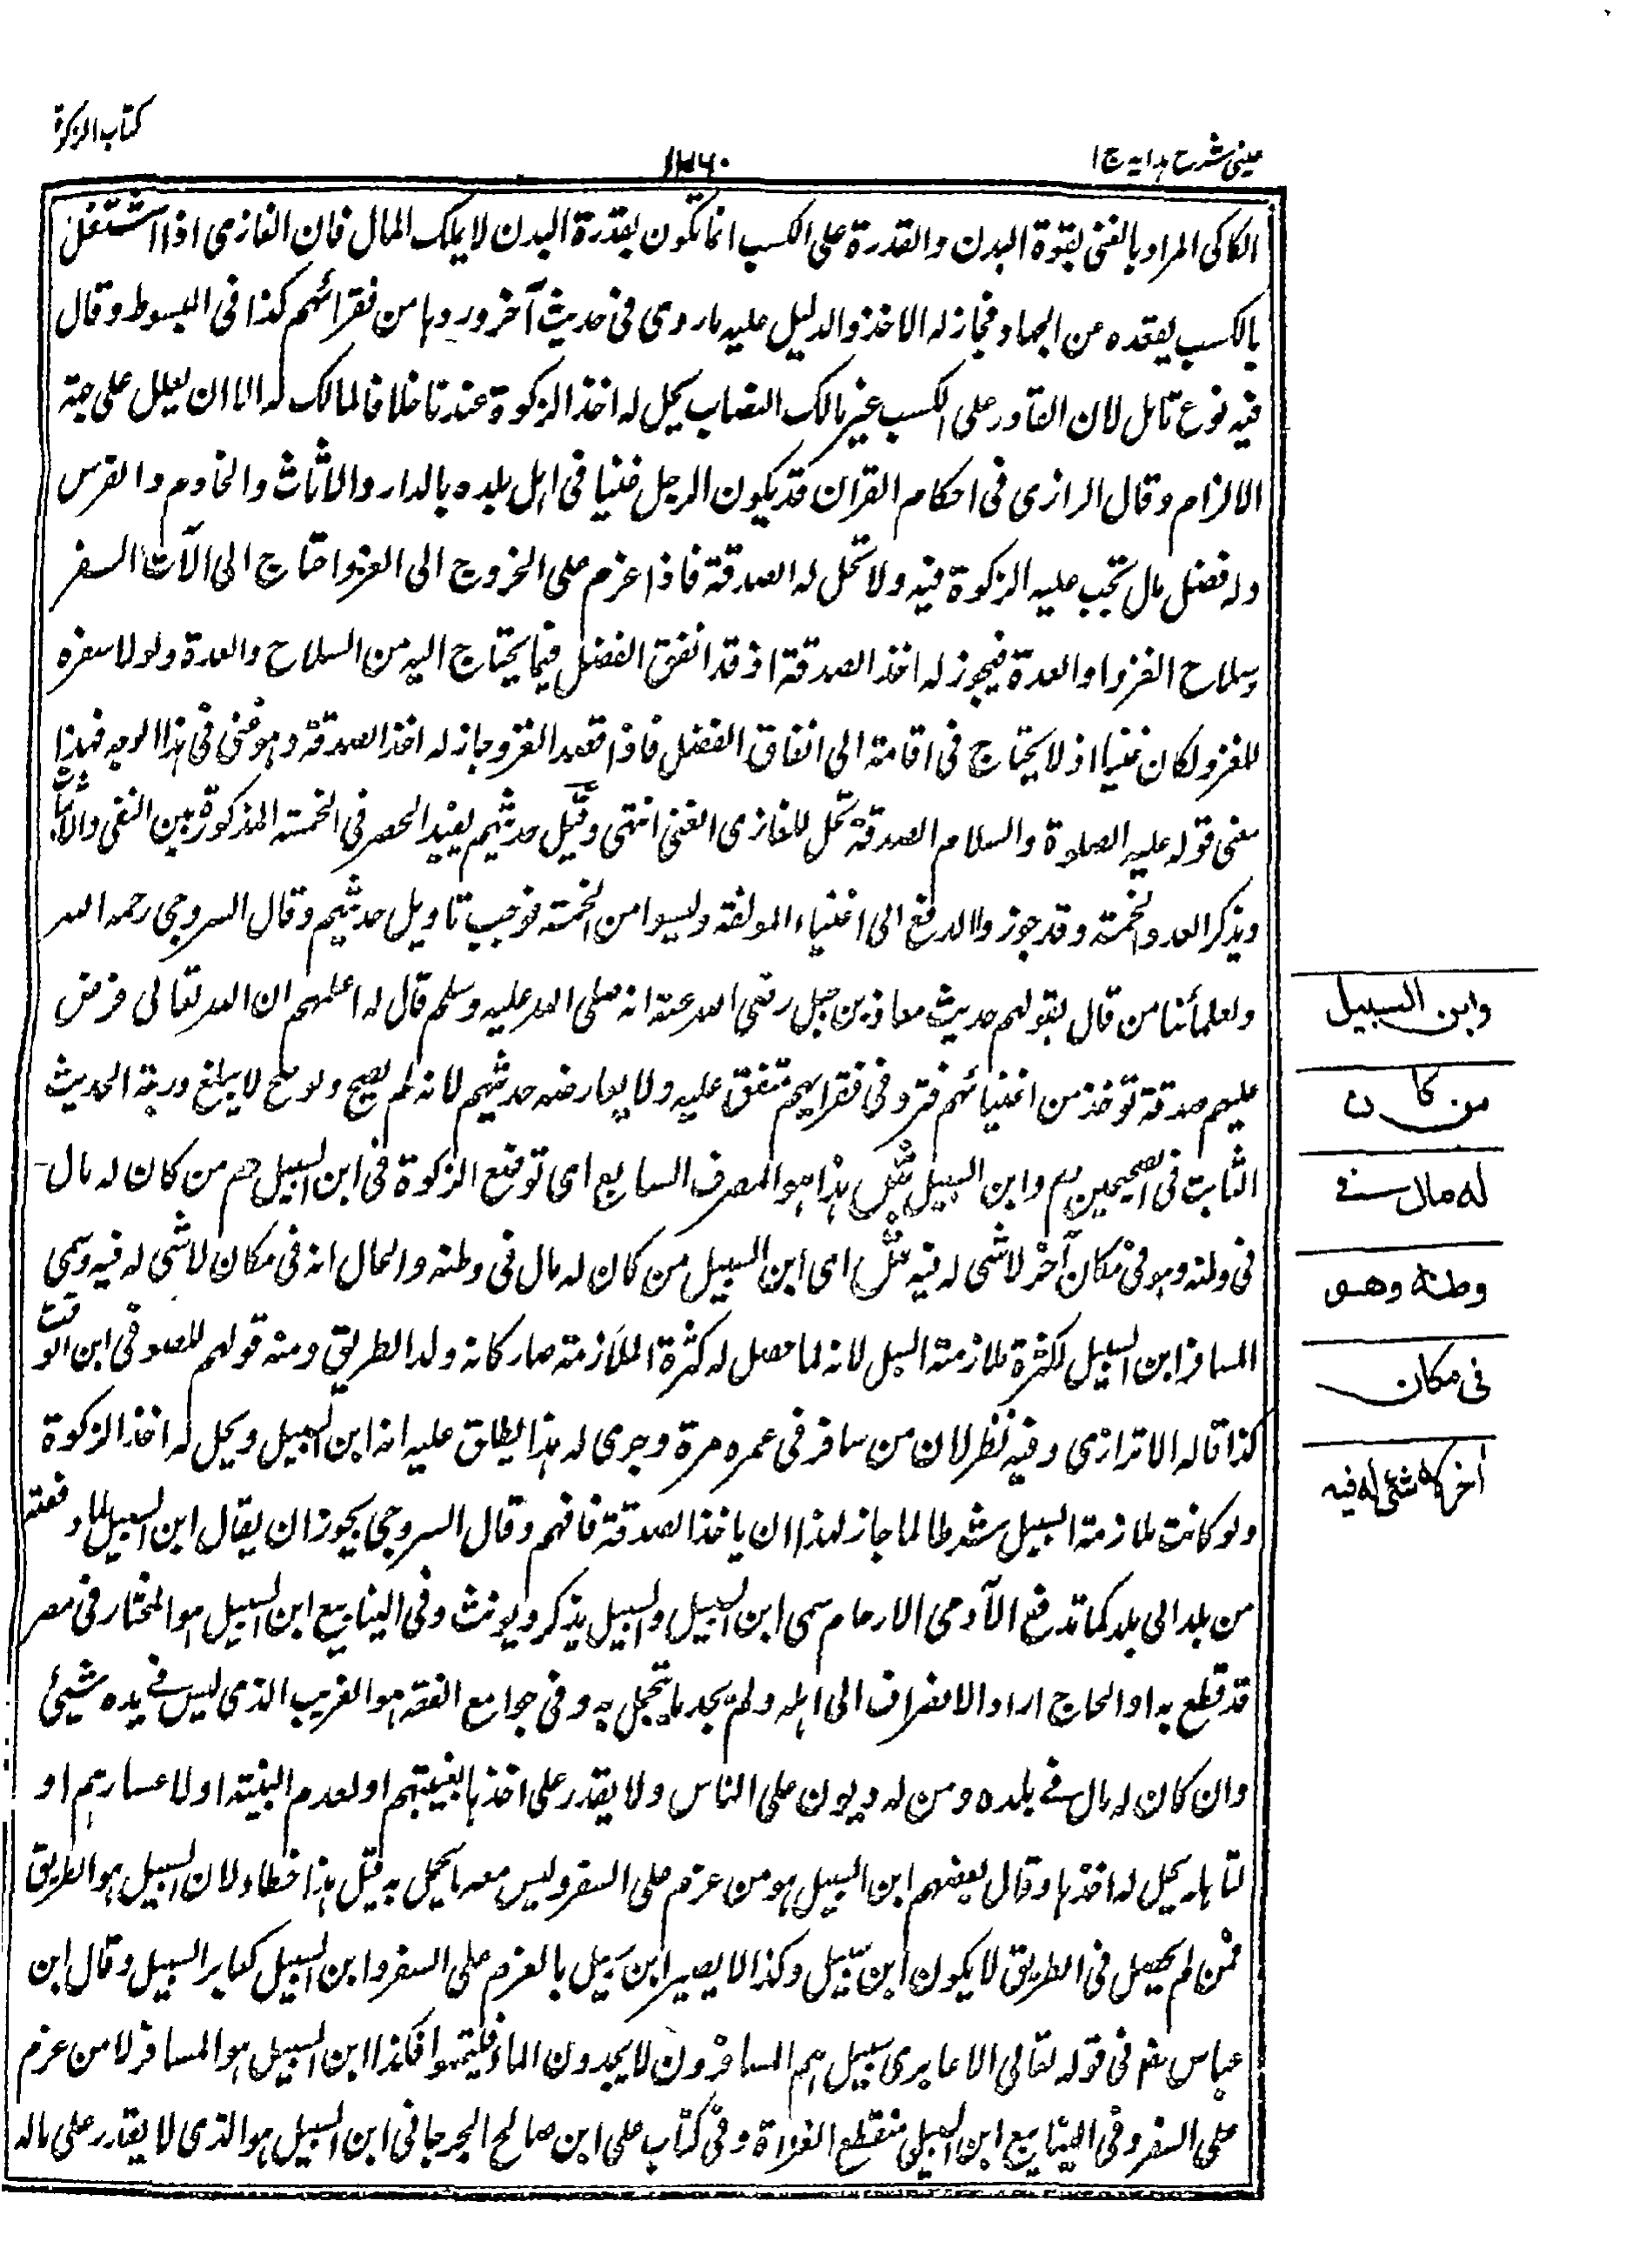 كتاب الزكوة
عینی شرح ہدایہ ج ١
١٢٦٠
الكاكى المراد بالغنى بقوة البدن والقدرة على الكسب انما تكون بقدرة البدن لا بملك المال فان الغازى اذا اشتغل
بالكسب يقعده عن الجهاد فجاز له الاخذ والدليل عليه ما روى فى حديث آخر وردها من فقرائهم كذا فى المبسوط وقال
فيه نوع تامل لان القادر على الكسب غير مالك النصاب يحل له اخذ الزكوة عندنا خلافا لمالك له الا ان يعلل على جهة
الالزام وقال الرازى فى احكام القرآن قد يكون الرجل غنيا فى اهل بلده بالدار والاثاث والخادم والفرس
وله فضل مال تجب عليه الزكوة فيه ولا تحل له الصدقة فاذا عزم على الخروج الى الغزو احتاج الى آلات السفر
وسلاح الغزو او العدة فيجوز له اخذ الصدقة اذ قد انفق الفضل فيما يحتاج اليه من السلاح والعدة ولولا سفره
للغزو لكان غنيا اذ لا يحتاج فى اقامته الى انفاق الفضل فاذا قصد الغزو جاز له اخذ الصدقة وهو غنى فى هذا الوجه فهذا
معنى قوله عليه الصلوة والسلام الصدقة تحل للغازى الغنى انتهى وقيل حديثهم يفيد الحصر فى الخمسة المذكورة بين النفى والاثبات
وبذكر العدد والخمسة وقد جوزوا الدفع الى اغنياء المولفة وليسوا من الخمسة فوجب تاويل حديثهم وقال السروجى رحمه الله
ولعلمائنا من قال بقولهم حديث معاذ بن جبل رضى الله عنه انه صلى الله عليه وسلم قال له اعلمهم ان الله تعالى فرض
عليهم صدقة توخذ من اغنيائهم فترد فى فقرايهم متفق عليه ولا يعارضه حديثهم لانه لم يصح ولو صح لا يبلغ درجة الحديث
الثابت فى الصحيحين م وابن السبيل ش هذا هو المصرف السابع اى توضع الزكوة فى ابن السبيل م من كان له مال
فى وطنه وهو فى مكان آخر لا شى له فيه ش اى ابن السبيل من كان له مال فى وطنه والحال انه فى مكان لا شى له فيه وسمى
المسافر ابن السبيل لكثرة ملازمته السبل لانه لما حصل له كثرة الملازمة صار كانه ولد الطريق ومنه قولهم للصوفى ابن الوقت
كذا قاله الاترازى وفيه نظر لان من سافر فى عمره مرة وجرى له هذا يطلق عليه انه ابن السبيل ويحل له اخذ الزكوة
ولو كانت ملازمة السبيل شرطا لما جاز لهذا ان ياخذ الصدقة فافهم وقال السروجى يجوز ان يقال ابن السبيل لما دفعته
من بلد الى بلد كما تدفع الآدمى الارحام سمى ابن السبيل والسبيل يذكر ويونث وفى الينابيع ابن السبيل هو المختار فى مصر
قد قطع به او الحاج اراد الانصراف الى اهله ولم يجد ما يتحمل به وفى جوامع الفقه هو الغريب الذى ليس فى يده شيئ
وان كان له مال فى بلده ومن له ديون على الناس ولا يقدر على اخذها لغيبتهم او لعدم البينة او لاعسارهم او
لتاجله يحل له اخذها وقال بعضهم ابن السبيل هو من عزم على السفر وليس معه ما يحمل به قيل هذا خطاء لان السبيل هو الطريق
فمن لم يحصل فى الطريق لا يكون ابن سبيل وكذا لا يصير ابن سبيل بالعزم على السفر وابن السبيل كعابر السبيل وقال ابن
عباس رضه فى قوله تعالى الا عابرى سبيل هم المسافرون لا يجدون الماء فليتيمموا فكذا ابن السبيل هو المسافر لا من عزم
على السفر وفى الينابيع ابن السبيل منقطع الغزاة وفى كتاب على ابن صالح الجرجانى ابن السبيل هو الذى لا يقدر على ماله
وابن السبيل
من كان
له مال فے
وطنه وهو
فى مكان
آخر لا شئ له فيه